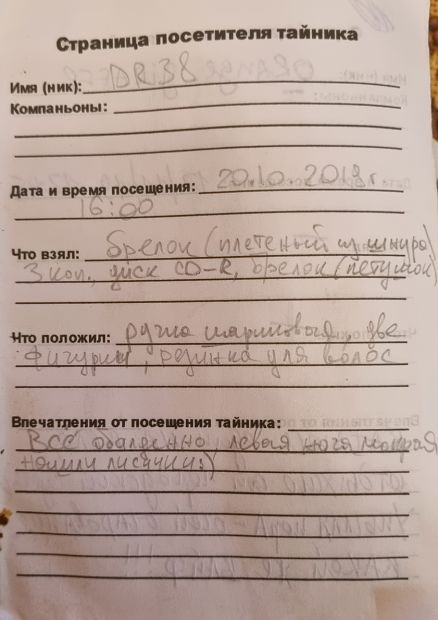 Страница посетителя тайника
Имя (ник): DR38
Компаньоны:
Дата и время посещения: 20.10.2018 г
16:00
Что взял: Брелок (плетеный из шнура)
3 коп., диск CD-R, брелок (петушок)
Что положил: ручка шариковая, две
фигурки, резинка для волос
Впечатления от посещения тайника:
Всё обалденно левая нога мокрая
нашли лисички:)